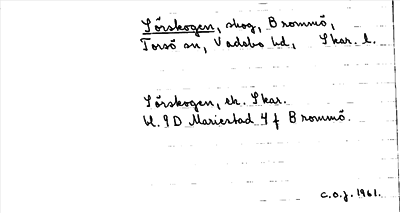 Sörskogen, skog, Brommö,
Torsö sn, Vadsbo hd, Skar. l.
Sörskogen, ek. Skar.
bl. 9D Mariestad 4 f Brommö.
C.O.J. 1961.